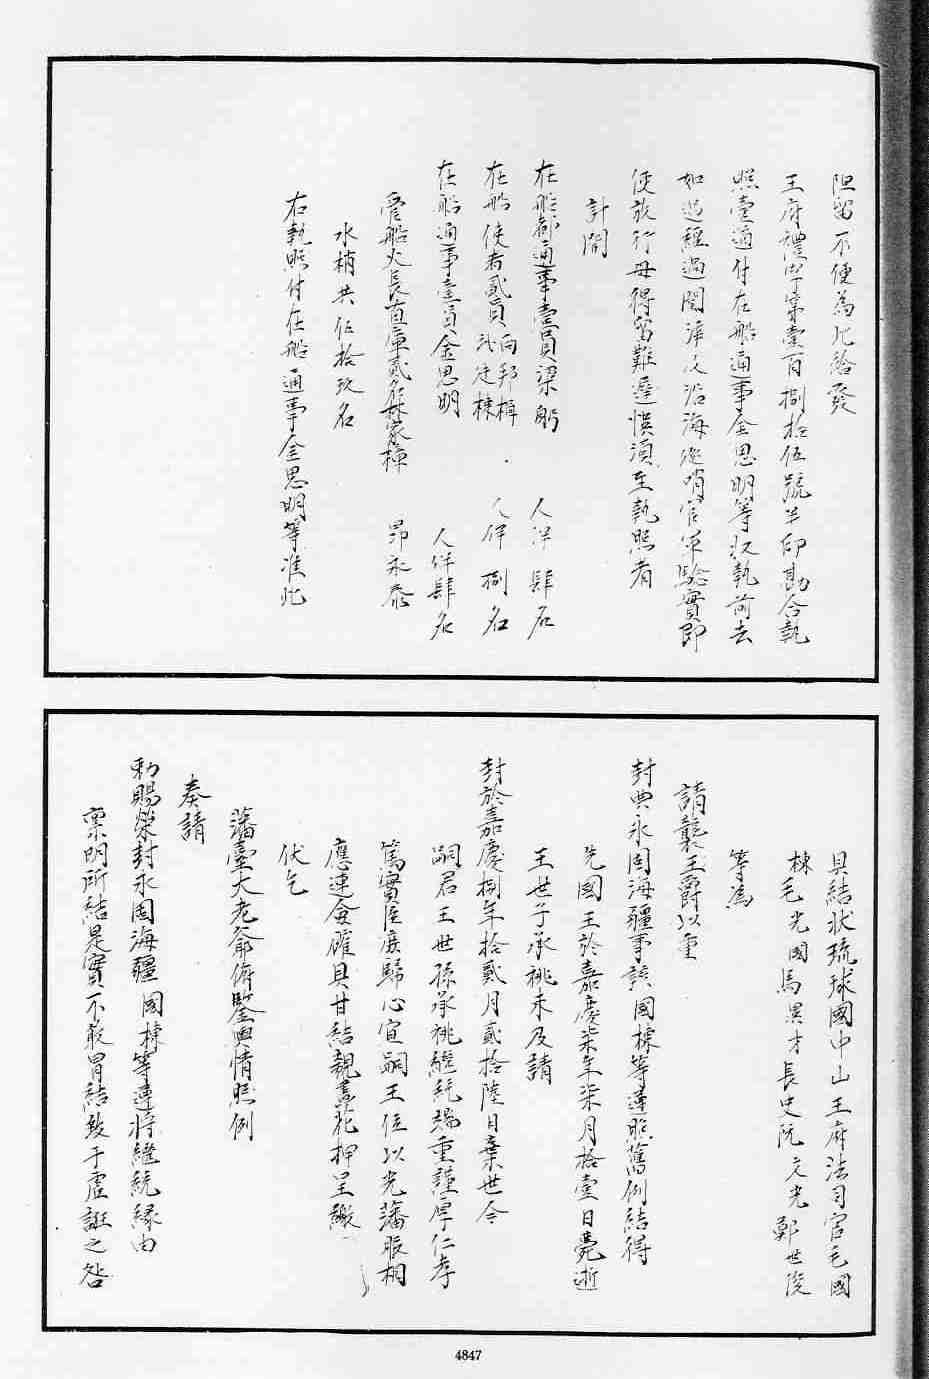 阻留不便為此給發
王府禮字第壹百捌拾伍號半印勘合執
照壹通付在船通事金思明等收執前去
如遇經過關津及沿海巡哨官軍驗實即
便放行毋得留難遲悞須至執照者
計開
在船都通事壹員梁躬 人伴肆名
在船使者貳員向邦楫 棟 人伴捌名
在船通事壹員金思明 人伴肆名
管船火長直庫貳名林家椿 昂永泰
水梢共伍拾玖名
右執照付在船通事金思明等准此
具結狀琉球國中山王府法司官毛國
棟毛光國馬異才長史阮文光鄭世俊
等為
請襲王爵以重
封典永固海疆事該國棟等遵照舊例結得
先國王於嘉慶柒年柒月拾壹日薨逝
王世子承祧未及請
封於嘉慶捌年拾貳月貳拾陸日棄世今
嗣君王世孫承祧繼統端重謹厚仁孝
篤實臣庶歸心宜嗣王位以光藩服相
應連僉確具甘結親畫花押呈繳
伏乞
藩臺大老爺俯鑒輿情照例
奏請
勅賜榮封永固海疆國棟等遵將繼統緣由
稟明所結是實不敢冒結致于虛誑之咎
4847